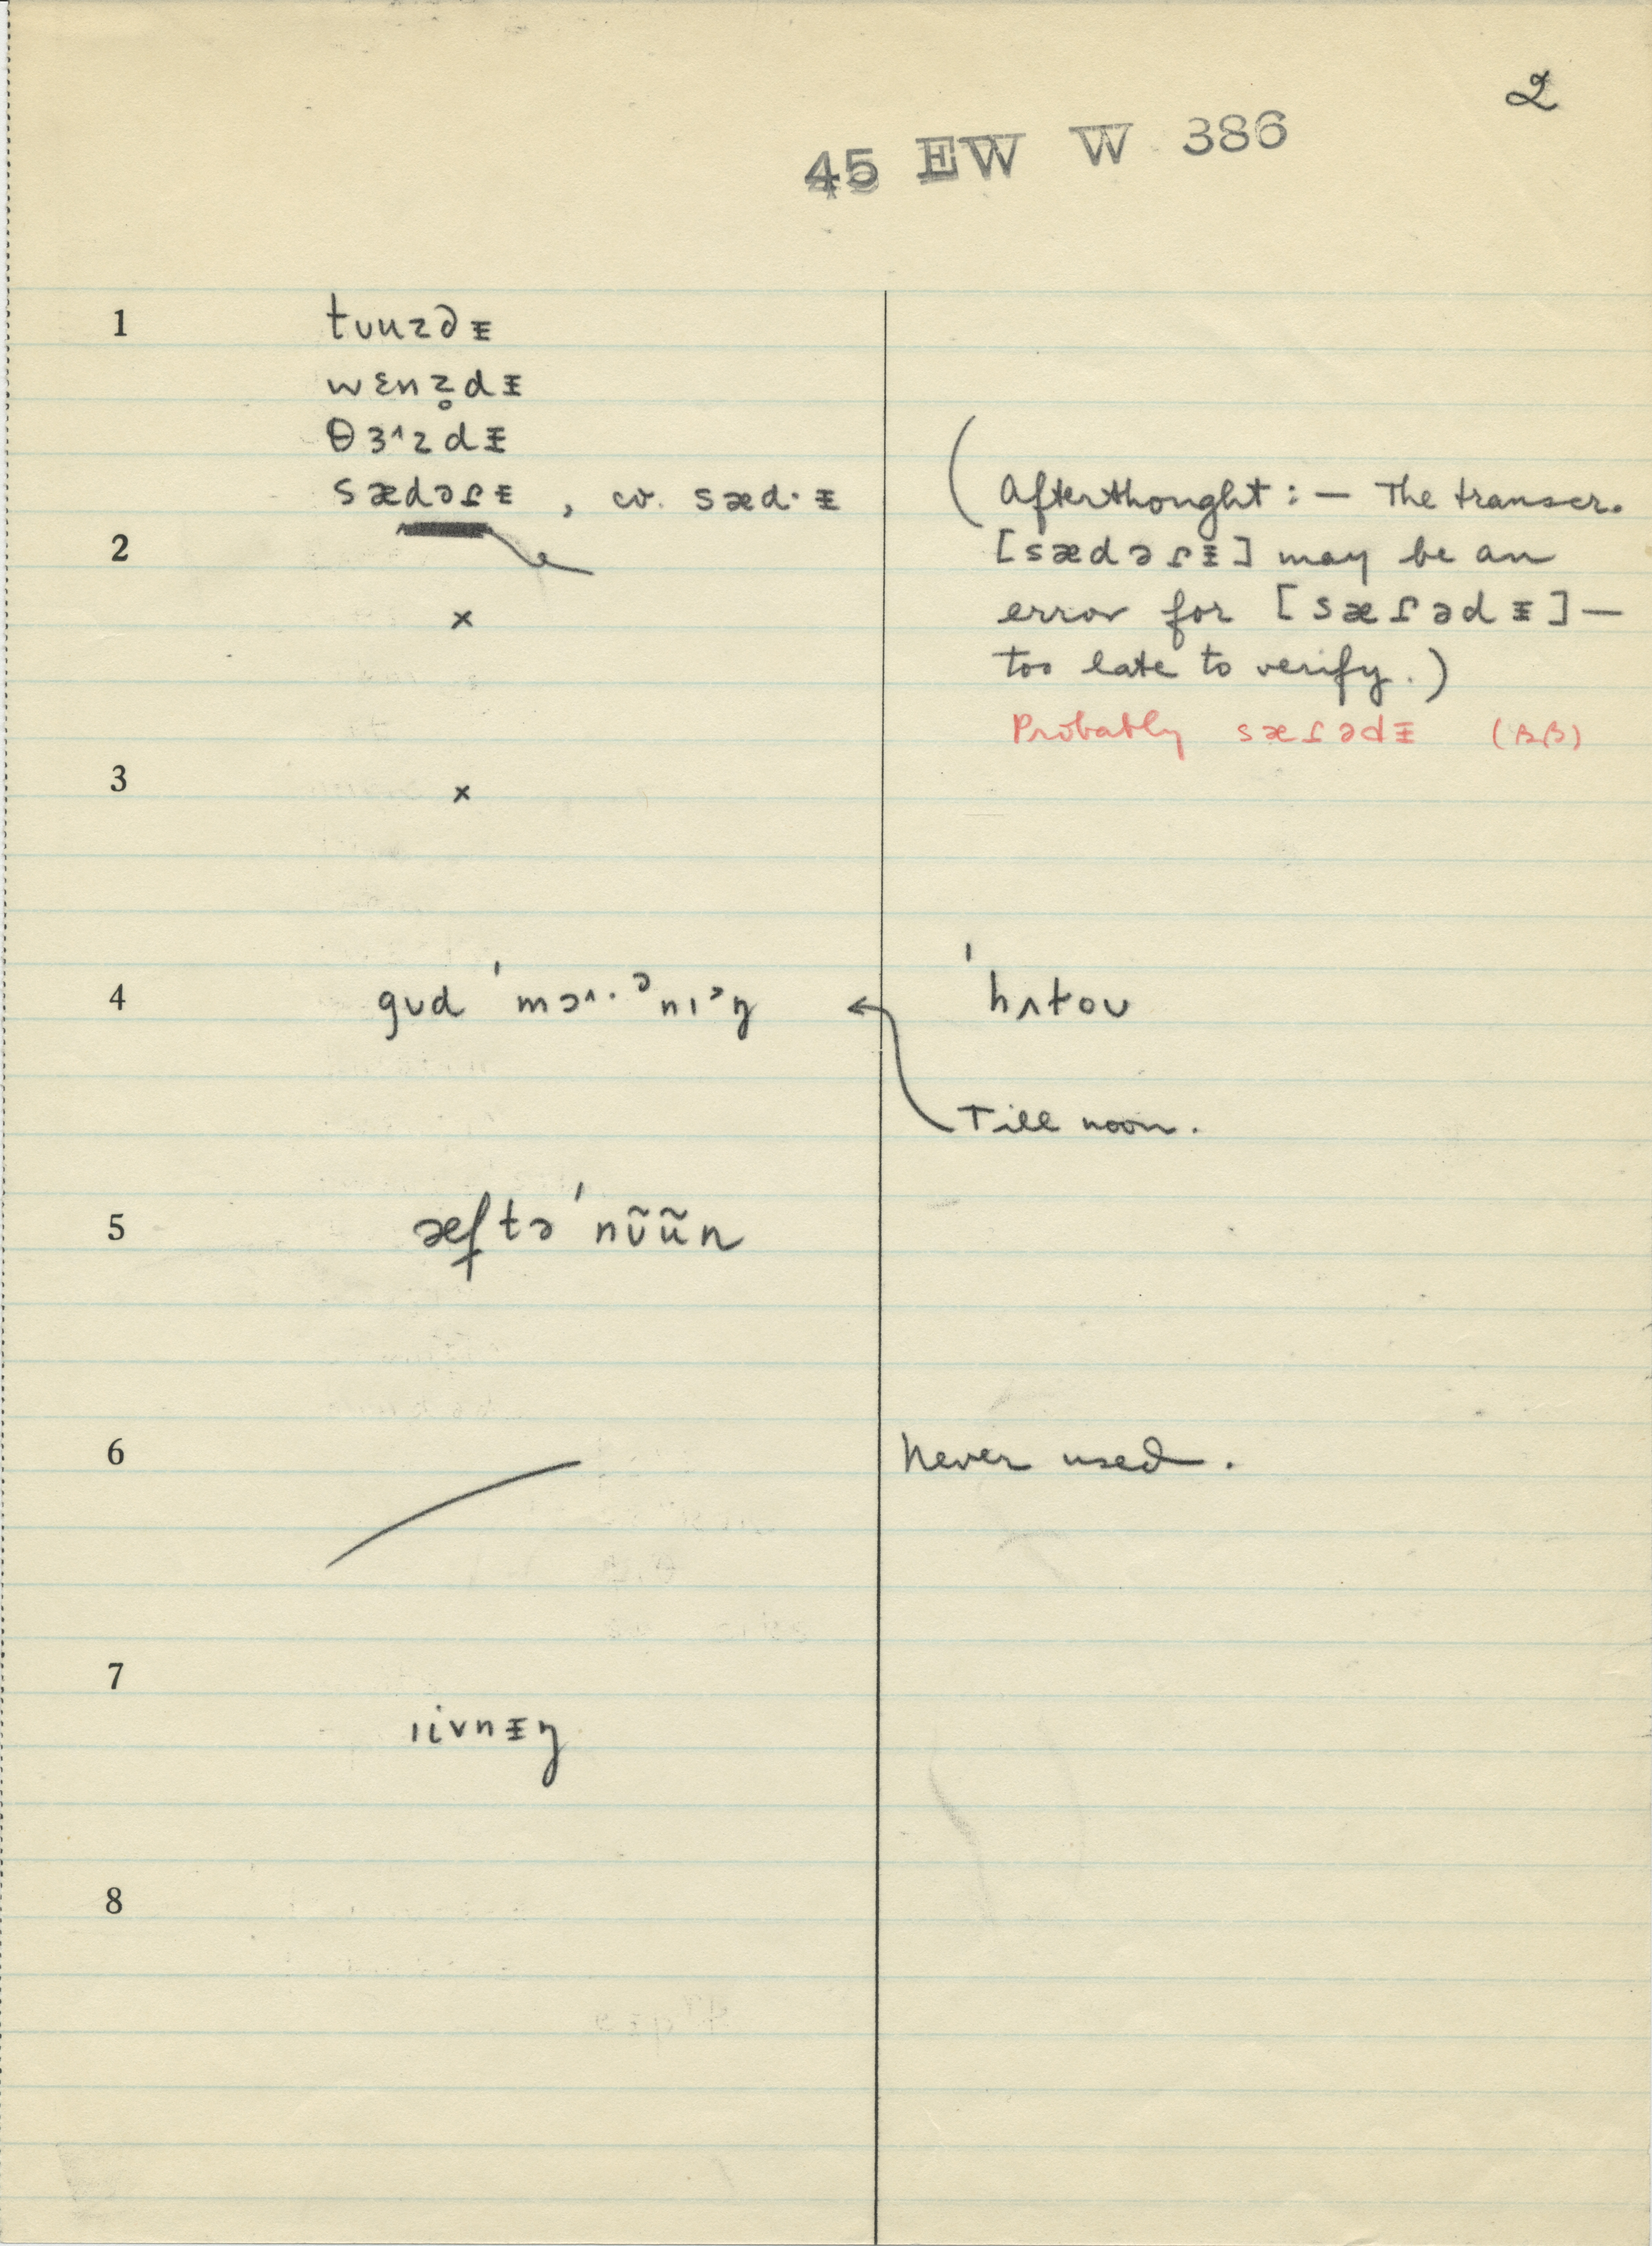 2
45 EW W 386
1 tᴜuzdᵻ
wɛnz̥dᵻ
θɜ˄zdᵻ
sædəɾᵻ , cv. sæd·ᵻ
(Afterthought : — The transcr.
2 [sædəɾᵻ] may be an
× error for [sæɾədᵻ] —
too late to verify.)
Probably sæɾədᵻ (BB)
3 ×
4 gᴜd ˈmɔ˄·ᵊnɪ˃ŋ ← ˈhʌtoᴜ
Till noon.
5 æftə ˈnᴜ̃ũn
6 Never used.
7 ıivnᵻŋ
8